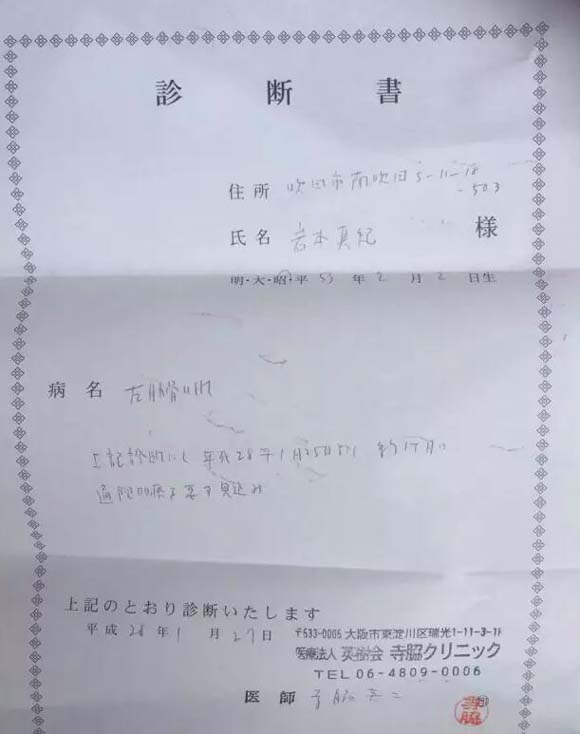 診断書
住所 吹田市南吹田5-11-18
-503
氏名 岩本真紀 様
明・大・昭・平 53年2月2日生
病名 左
上記診断にて 平成28年1月25日より 約1ケ月の
通院加療を要す見込み
上記のとおり診断いたします
平成28年1月27日
〒533-0005 大阪市東淀川区瑞光1-11-3-1F
医療法人 英樹会 寺脇クリニック
TEL 06-4809-0006
医師 寺脇英二
寺脇